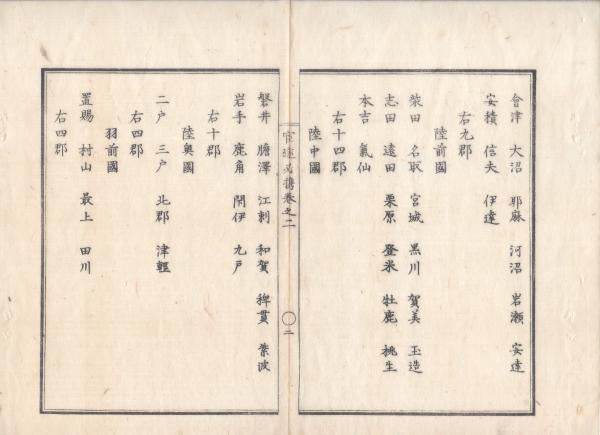 會津 大沼 耶麻 河沼 岩瀬 安達
安積 信夫 伊達
右九郡
陸前國
柴田 名取 宮城 黒川 賀美 玉造
志田 遠田 栗原 登米 牡鹿 桃生
本吉 氣仙
右十四郡
陸中國
官途必携巻之二
二
磐井 膽澤 江刺 和賀 稗貫 紫波
岩手 鹿角 閉伊 九戸
右十郡
陸奥國
二戸 三戸 北郡 津輕
右四郡
羽前國
置賜 村山 最上 田川
右四郡